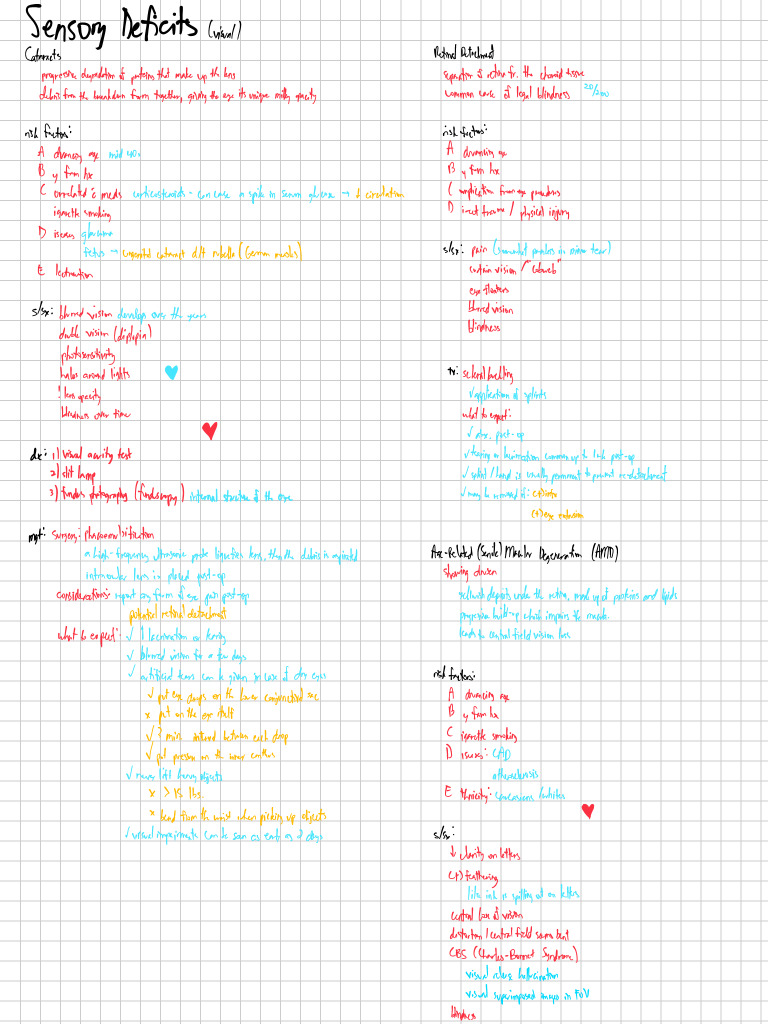 Sensory Deficits (visual)
Cataracts
progressive degradation of proteins that make up the lens
debris from the breakdown forms together, giving the eye its unique milky opacity
risk factors:
A dvancing age mid 40s
B y fam hx
C orrelated c̄ meds corticosteroids - can cause a spike in serum glucose → ↓ circulation
igarette smoking
D iseases glaucoma
fetus → congenital cataract d/t rubella (German measles)
E lectrocution
s/sx: blurred vision develops over the years
double vision (diplopia)
photosensitivity
halos around lights
! lens opacity
blindness over time
dx: 1) visual acuity test
2) slit lamp
3) fundus photography (funduscopy) internal structure of the eye
mgt: surgery: phacoemulsification
a high-frequency ultrasonic probe liquefies lens, then the debris is aspirated
intraocular lens is placed post-op
considerations: report any form of eye pain post-op
potential retinal detachment
what to expect: ✓ ↑ lacrimation or tearing
✓ blurred vision for a few days
✓ artificial tears can be given in case of dry eyes
✓ put eye drops on the lower conjunctival sac
x put on the eye itself
✓ 3 min. interval between each drop
✓ put pressure on the inner canthus
✓ never lift heavy objects
x > 15 lbs.
x bend from the waist when picking up objects
✓ visual improvements can be seen as early as 2 days
Retinal Detachment
separation of retina fr. the choroid tissue
common cause of legal blindness 20/200
risk factors:
A dvancing age
B y fam hx
C omplication from eye procedures
D irect trauma / physical injury
s/sx: pain (somewhat painless in minor tear)
curtain vision / "cobweb"
eye floaters
blurred vision
blindness
tx: scleral buckling
✓ application of splints
what to expect:
✓ disc. post-op
✓ tearing or lacrimation common up to 1 wk post-op
✓ splint / band is usually permanent to prevent re-detachment
✓ may be removed if: (+) infxn
(+) eye extrusion
Age-Related (Senile) Macular Degeneration (AMD)
showing drusen
yellowish deposits under the retina, made up of proteins and lipids
progressive build-up which impairs the macula
leads to central field vision loss
risk factors:
A dvancing age
B y fam hx
C igarette smoking
D iseases: CAD
atherosclerosis
E thnicity: Caucasian females
s/sx:
↓ clarity on letters
(+) feathering
like ink is spilling out on letters
central loss of vision
distortion / central field seems bent
CBS (Charles-Bonnet Syndrome)
visual release hallucination
visual superimposed images in FoV
blindness